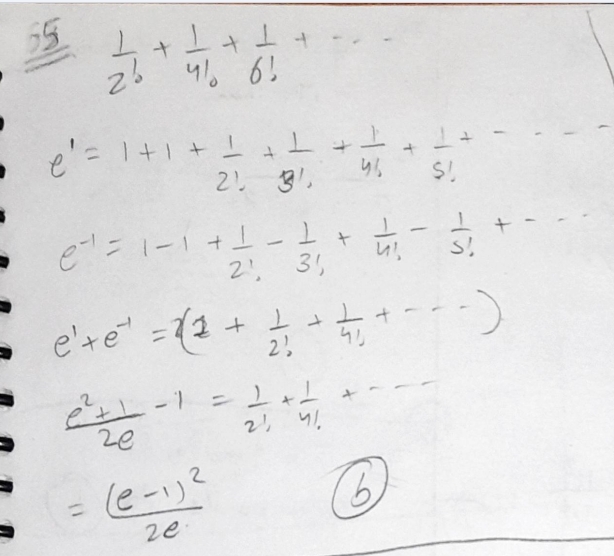 55
1/2! + 1/4! + 1/6! + - - -
e¹ = 1 + 1 + 1/2! + 1/3! + 1/4! + 1/5! + - - - -
e⁻¹ = 1 - 1 + 1/2! - 1/3! + 1/4! - 1/5! + - - -
e¹ + e⁻¹ = 2(1 + 1/2! + 1/4! + - - - -)
(e² + 1)/2e - 1 = 1/2! + 1/4! + - - - -
= (e - 1)²/2e (b)